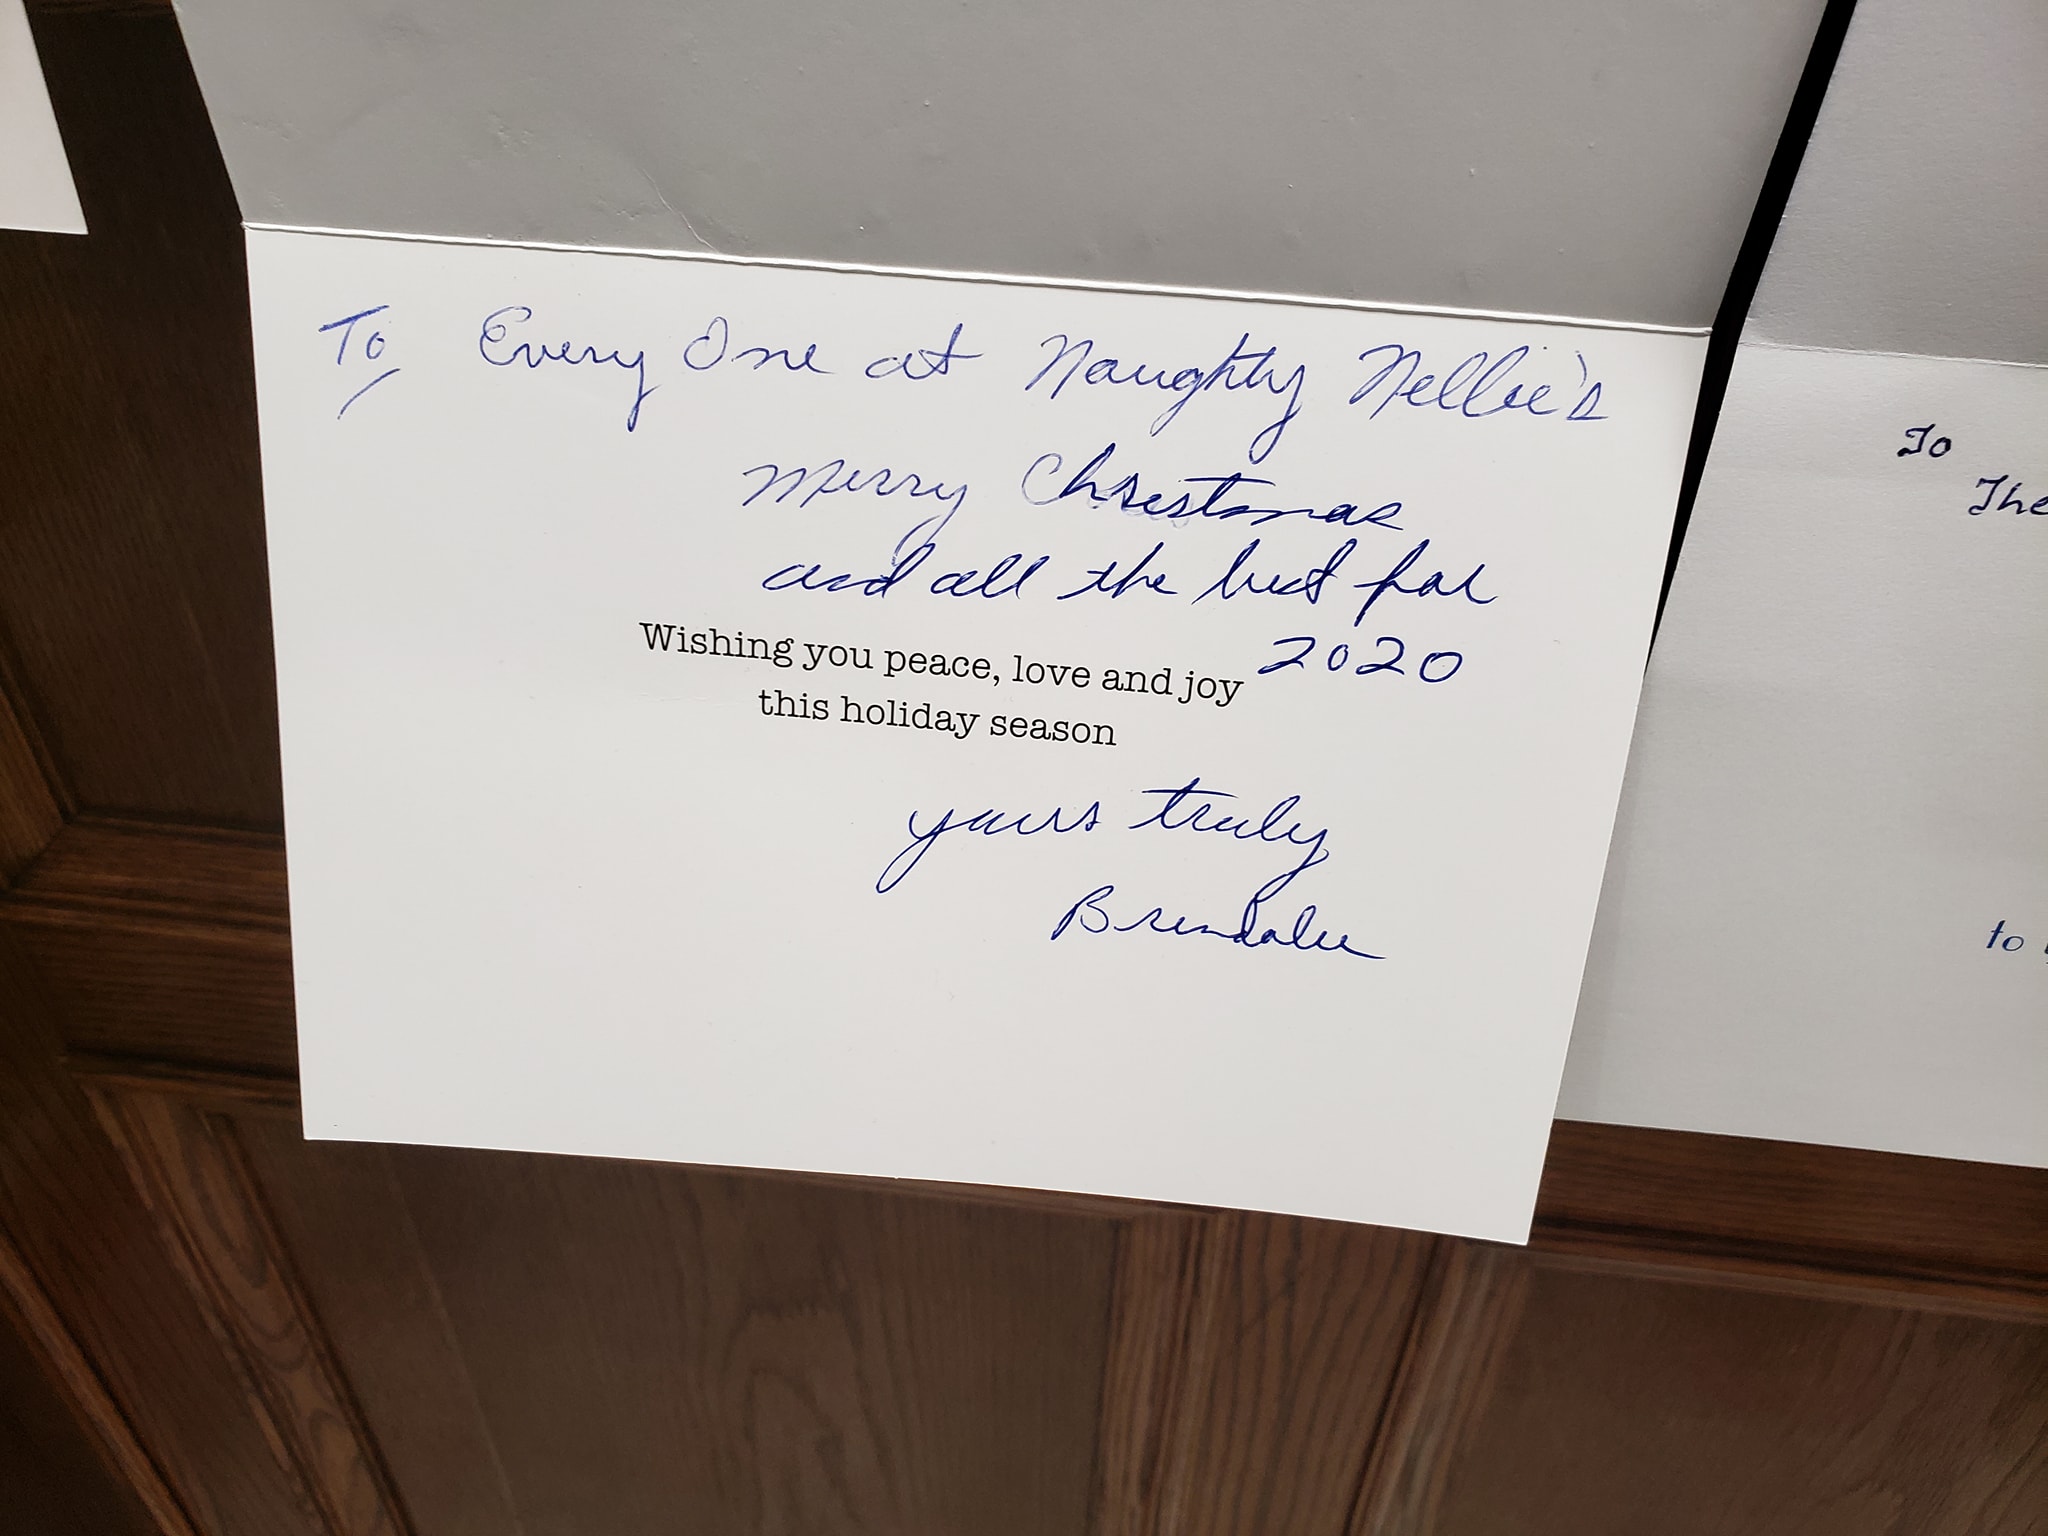 To Every One at Naughty Nellie's
Merry Christmas
and all the best for
2020
Wishing you peace, love and joy
this holiday season
yours truly
Brendalee
To
The
to